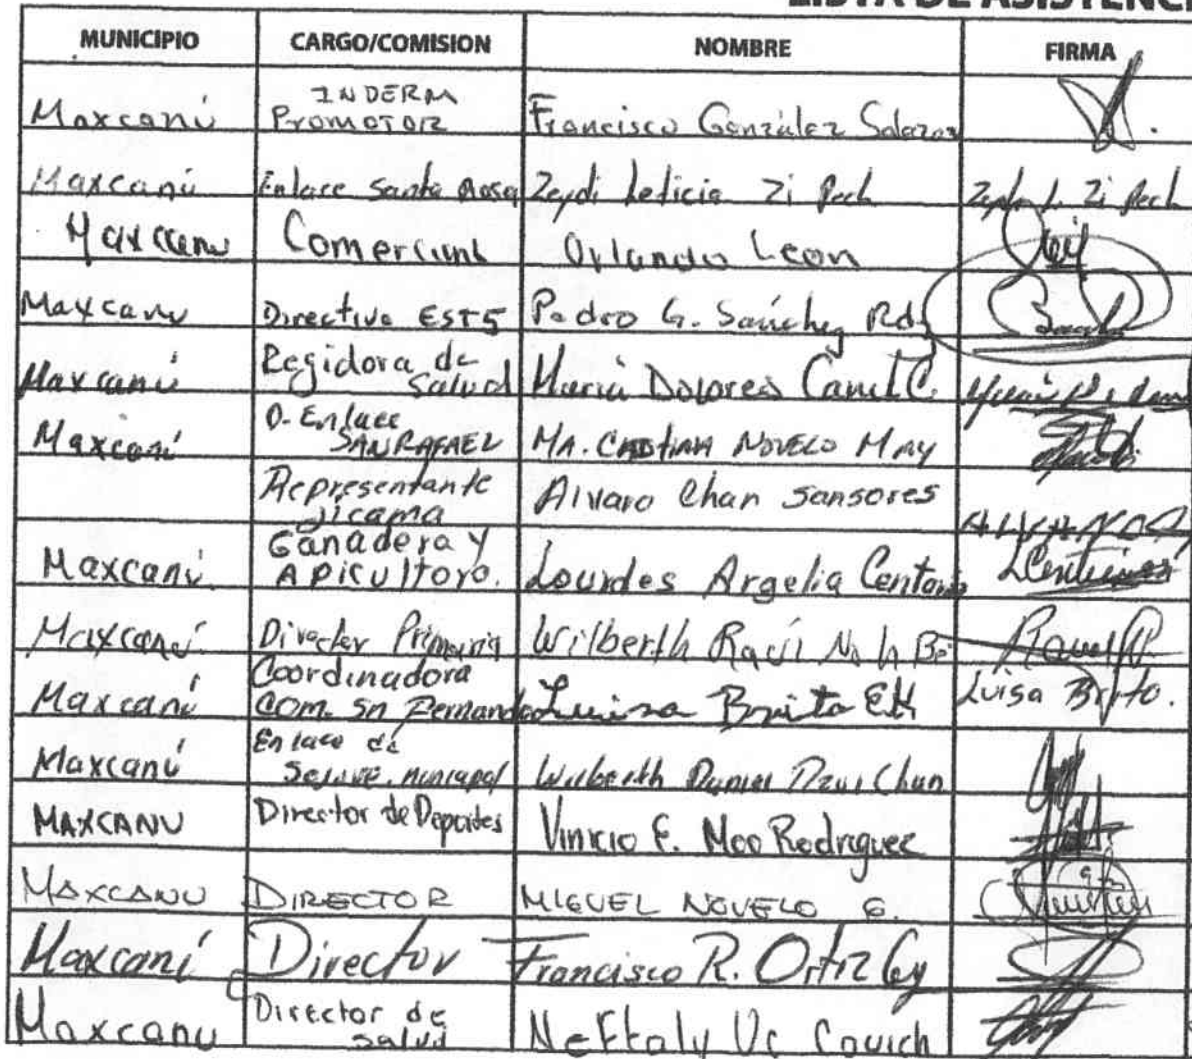 LISTA DE ASISTENCI
MUNICIPIO CARGO/COMISION NOMBRE FIRMA
Maxcanú INDERM
Promotor Francisco González Salazar
Maxcanú Enlace Santa Rosa Zeydi Leticia Zi Pech Zeydi L. Zi Pech
Maxcanu Comercial Orlando Leon
Maxcanu Directivo EST5 Pedro G. Sánchez Rdz
Maxcanú Regidora de
Salud María Dolores Canul C.
Maxcanú O. Enlace
SAN RAFAEL MA. NOVELO MAY
Representante
Jicama Alvaro Chan Sansores
Maxcanú Ganadera y
Apicultoro. Lourdes Argelia
Maxcanú Director Primaria Wilberth Raúl Noh
Maxcaní Coordinadora
Com. Sn Fernando Luisa Brito E.K Luisa Brito.
Maxcanú Enlace de
municipal Wilberth Daniel Chan
MAXCANU Director de Deportes Vinicio E. Moo Rodriguez
MAXCANU DIRECTOR MIGUEL NOVELO G.
Maxcaní Director Francisco R. Ortiz
Maxcanu Director de
salud Neftaly Uc Cauich